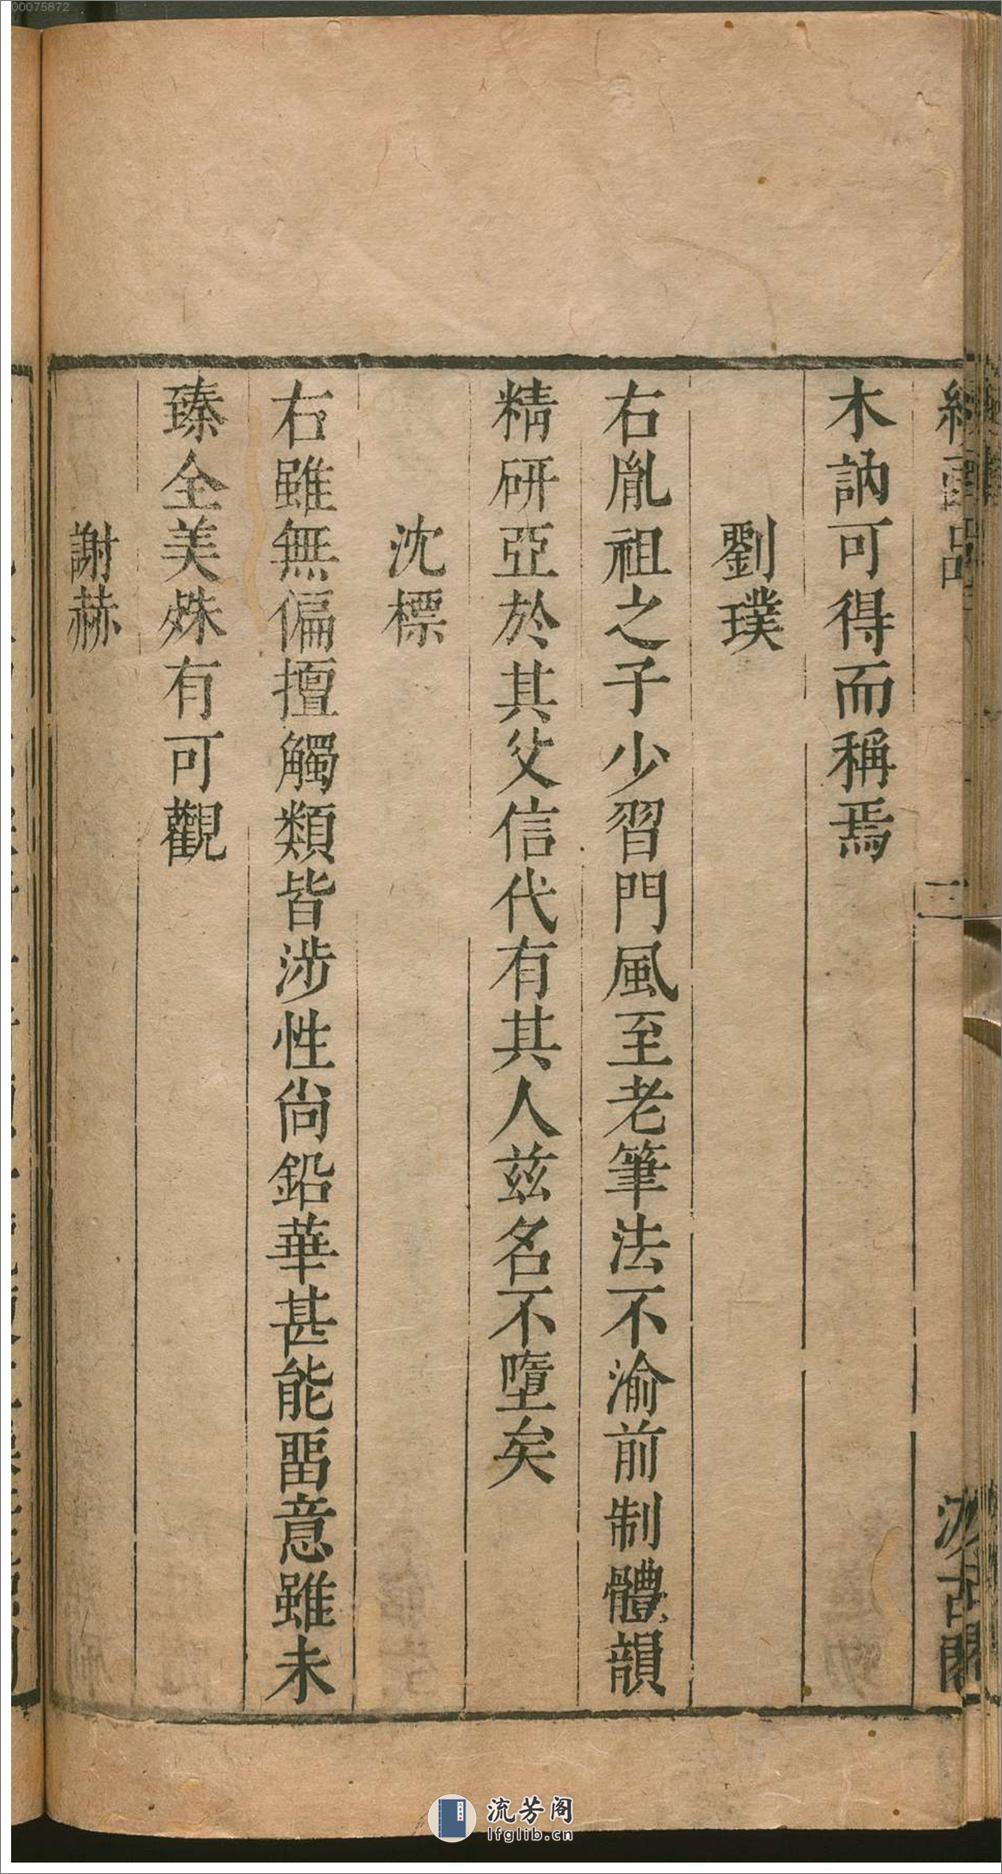 00075872
續畫品
三
汲古閣
木訥可得而稱焉
劉璞
右胤祖之子少習門風至老筆法不渝前制體韻
精研亞於其父信代有其人茲名不墮矣
沈標
右雖無偏擅觸類皆涉性尚鉛華甚能畱意雖未
臻全美殊有可觀
謝赫
流芳阁
lfglib.cn